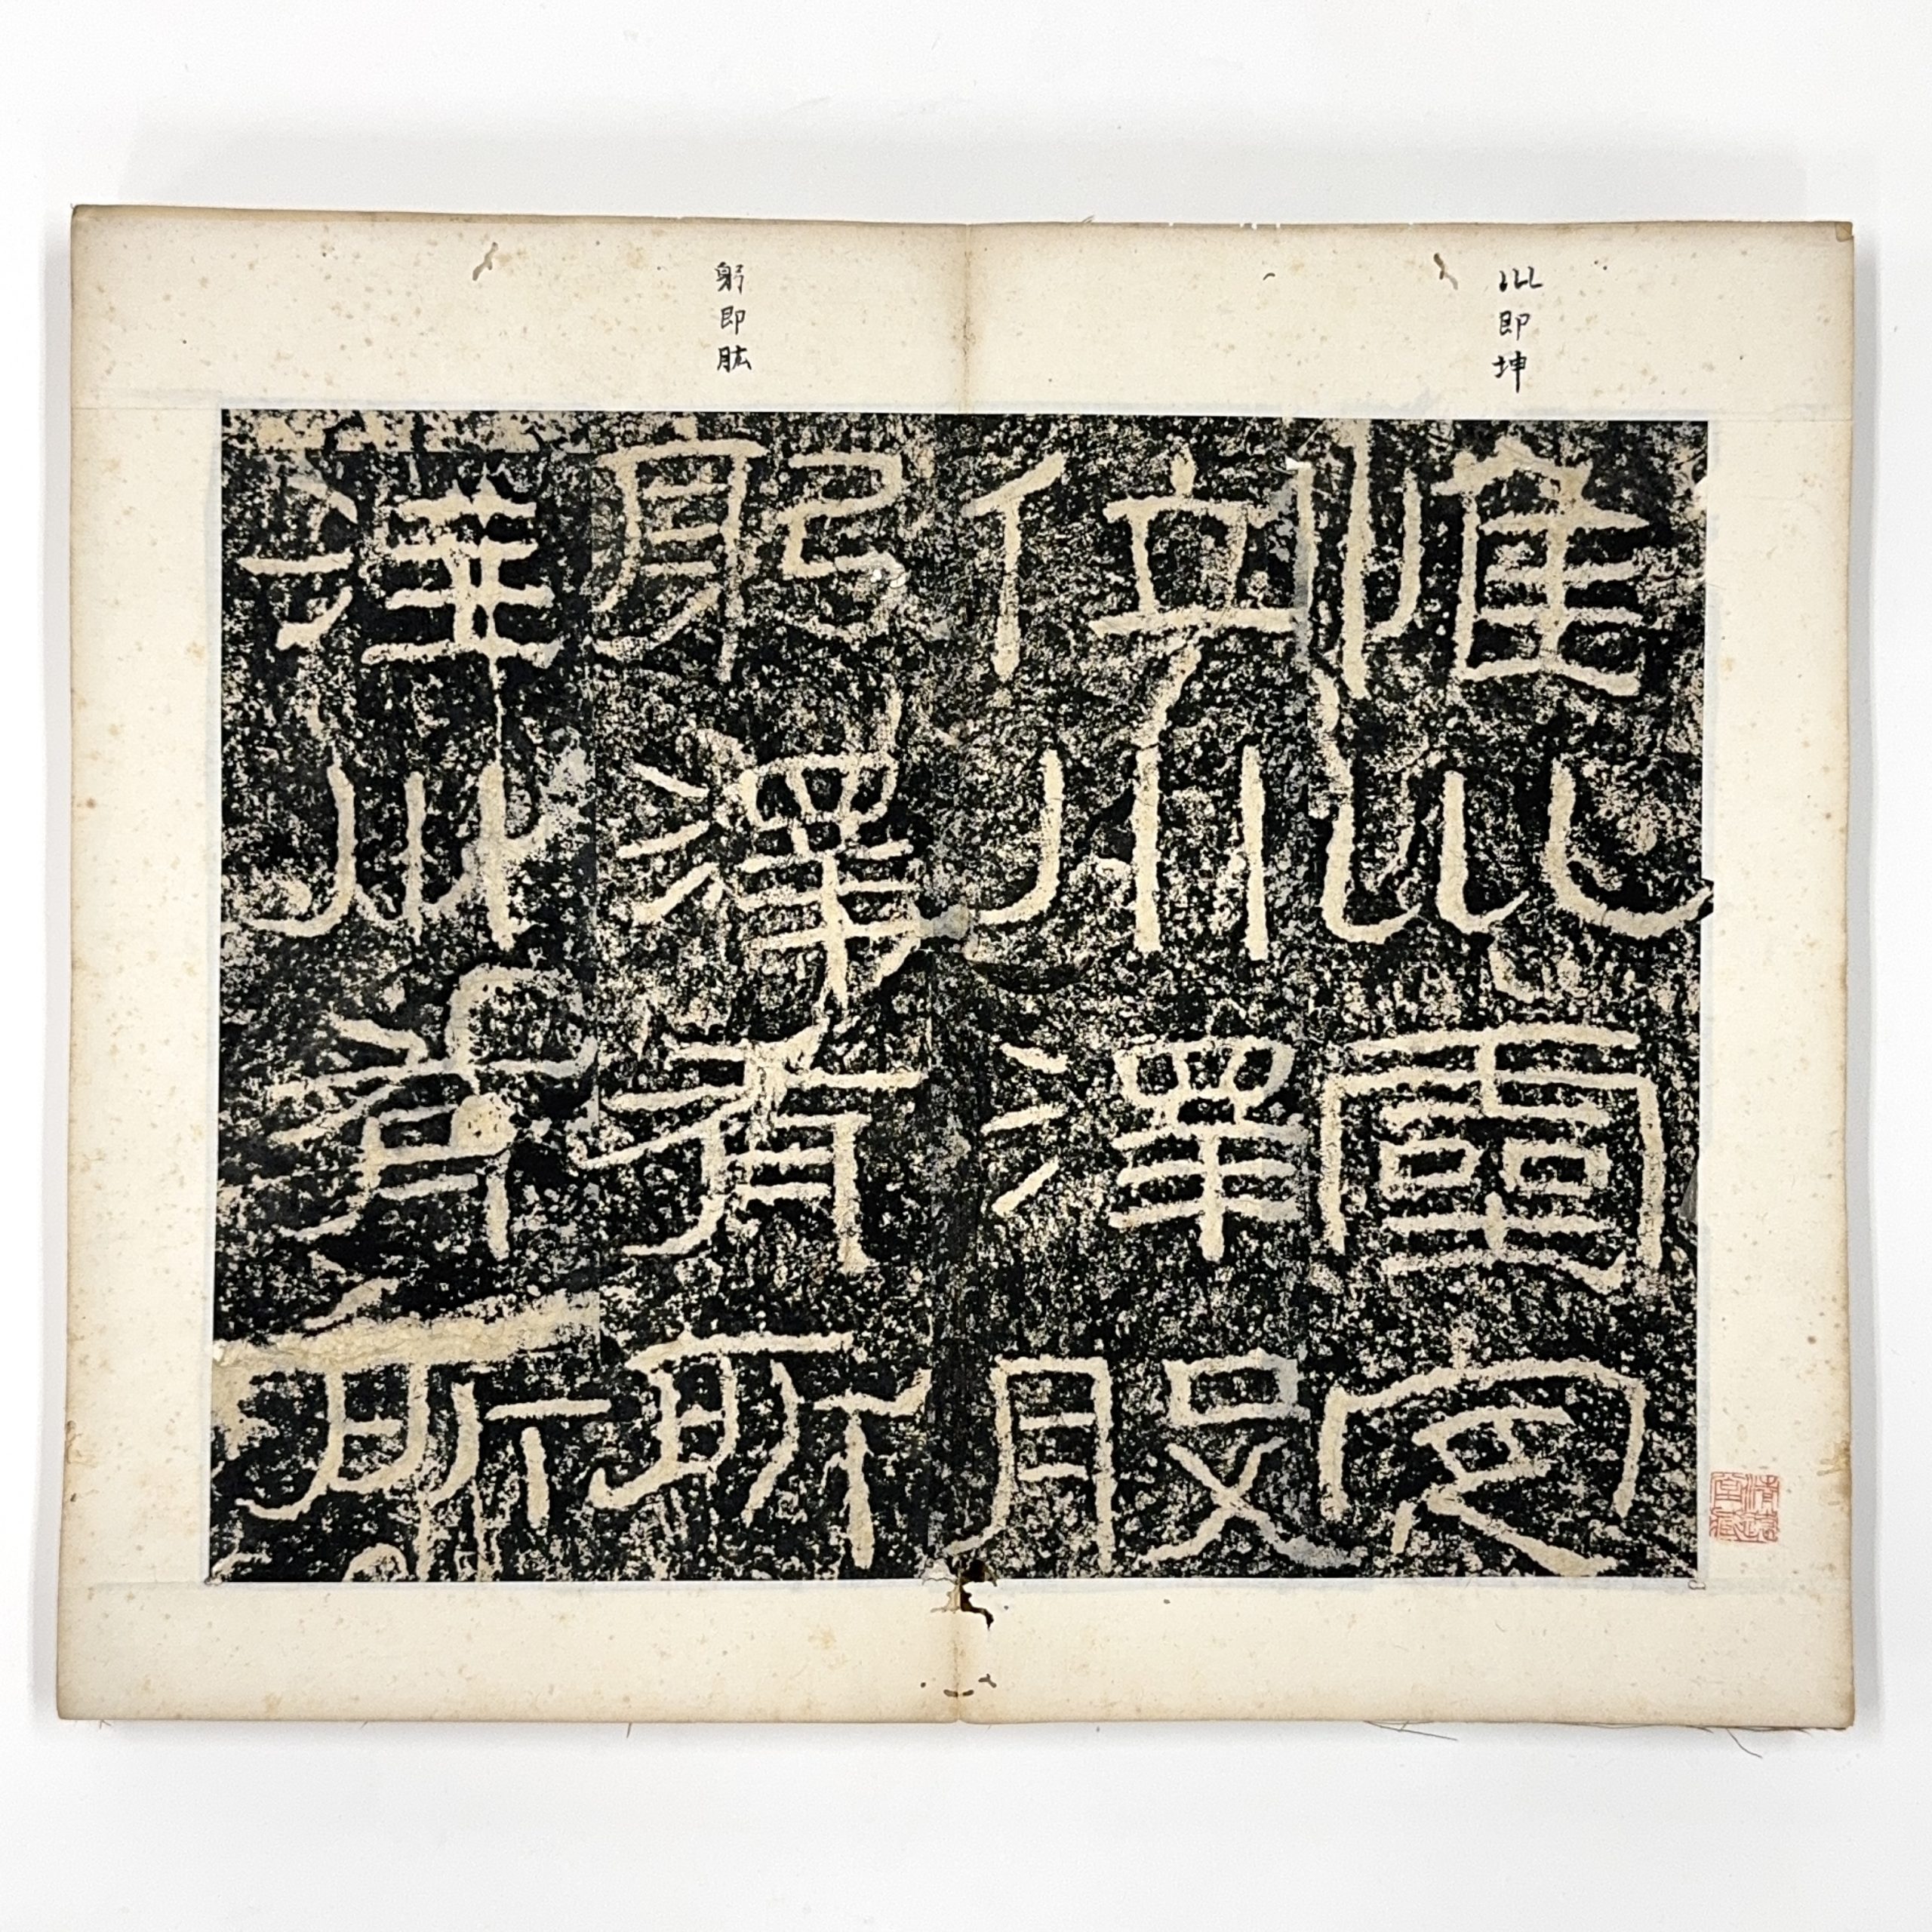 巛即坤
躬即肱
惟巛靈定
位川澤股
躬澤有所
注川有所